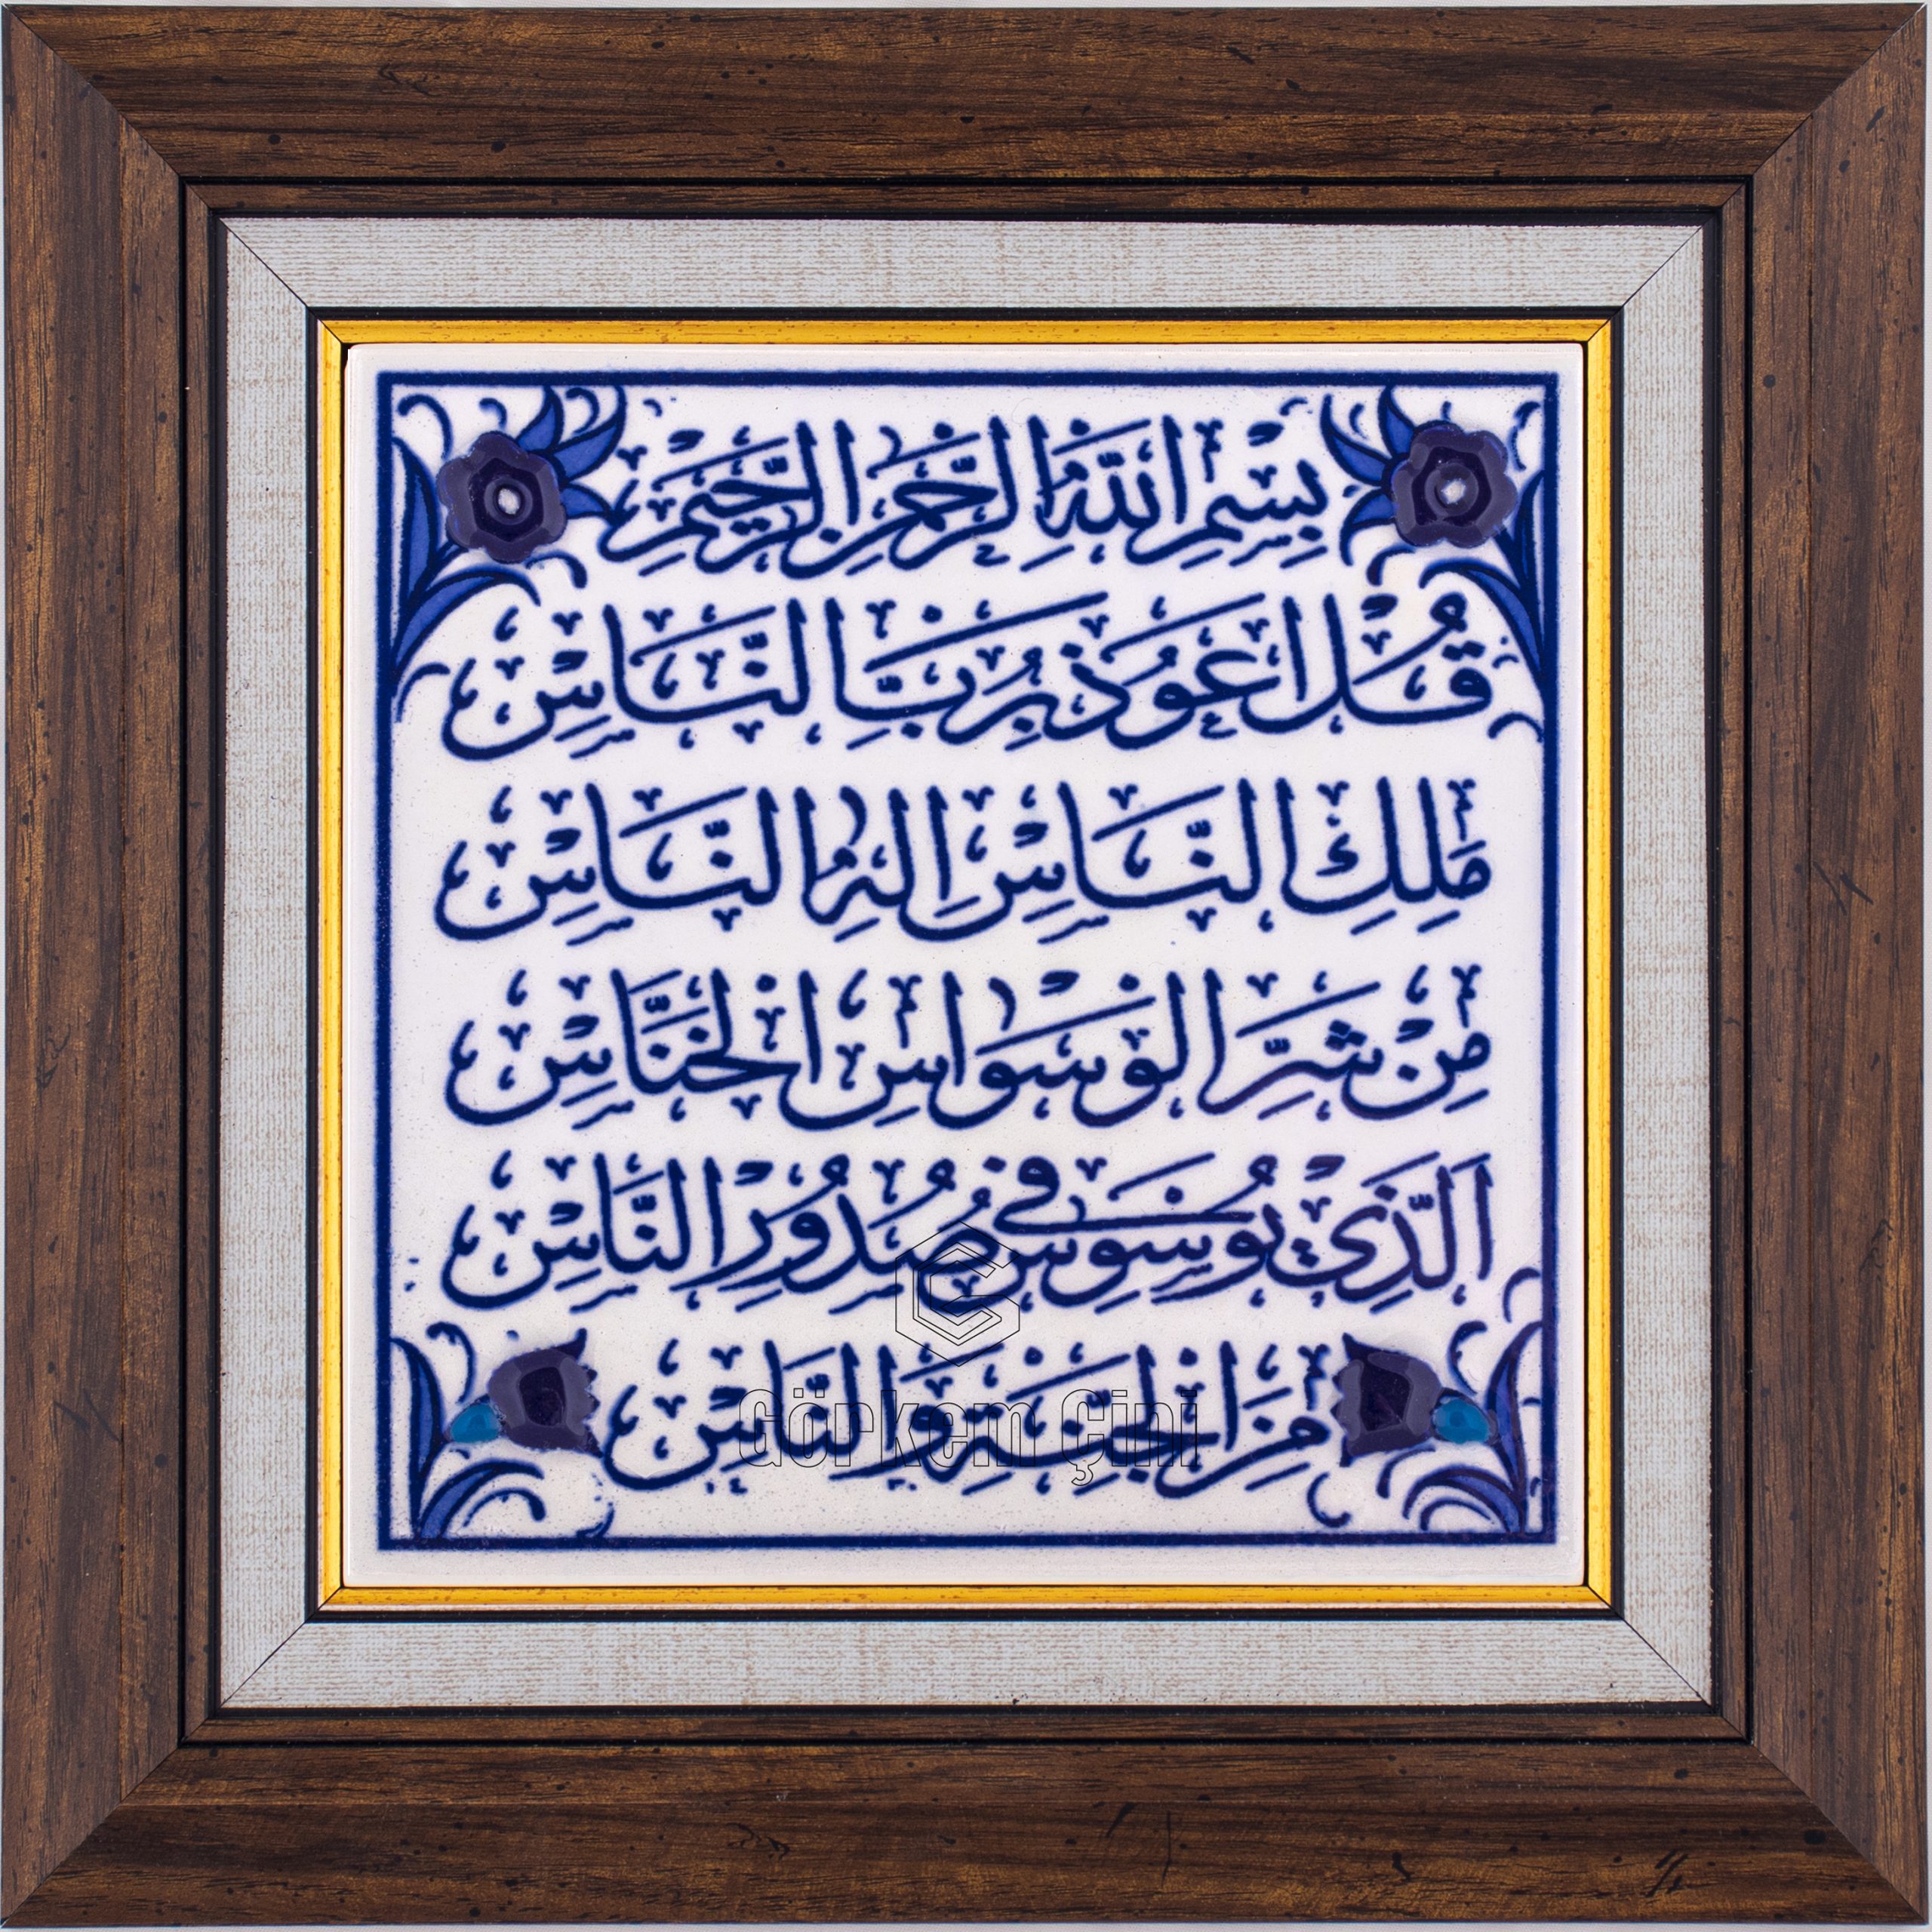 بِسْمِ اللّٰهِ الرَّحْمٰنِ الرَّحِيمِ
قُلْ اَعُوذُ بِرَبِّ النَّاسِ
مَلِكِ النَّاسِ اِلٰهِ النَّاسِ
مِنْ شَرِّ الْوَسْوَاسِ الْخَنَّاسِ
اَلَّذِي يُوَسْوِسُ فِي صُدُورِ النَّاسِ
مِنَ الْجِنَّةِ وَالنَّاسِ
Görkem Çini